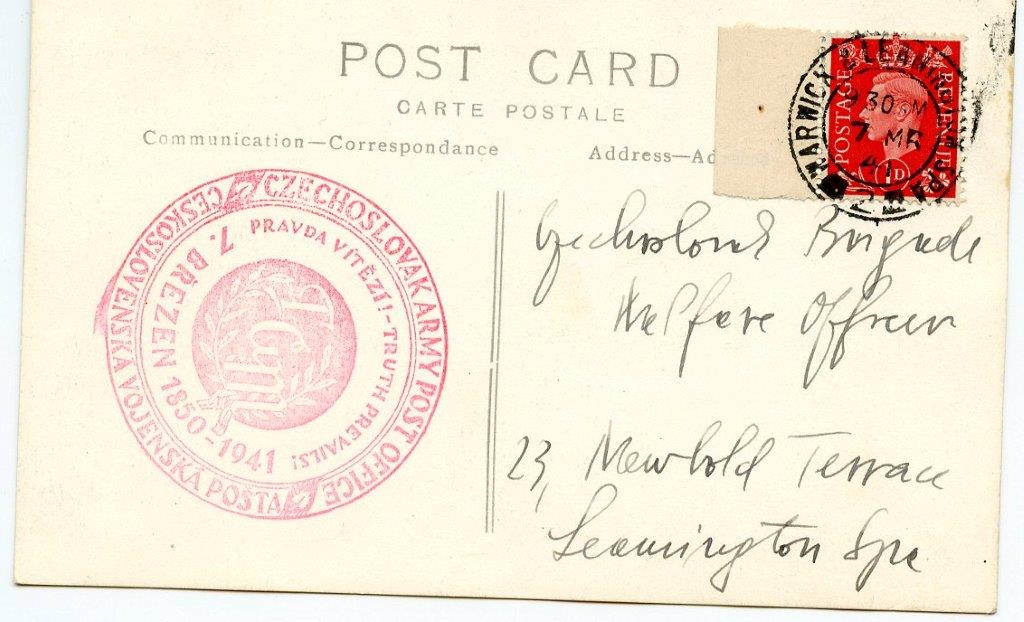 POST CARD
CARTE POSTALE
Communication—Correspondance
Address—Ad
WARWICK & LEAMINGTON SPA
30 M
7 MR
41
2
POSTAGE
REVENUE
1D
CZECHOSLOVAK ARMY POST OFFICE
ČESKOSLOVENSKÁ VOJENSKÁ POŠTA
PRAVDA VÍTĚZÍ! - TRUTH PREVAILS!
7. BŘEZEN 1850-1941
TGM
Czechoslovak Brigade
Welfare Officer
23, Newbold Terrace
Leamington Spa